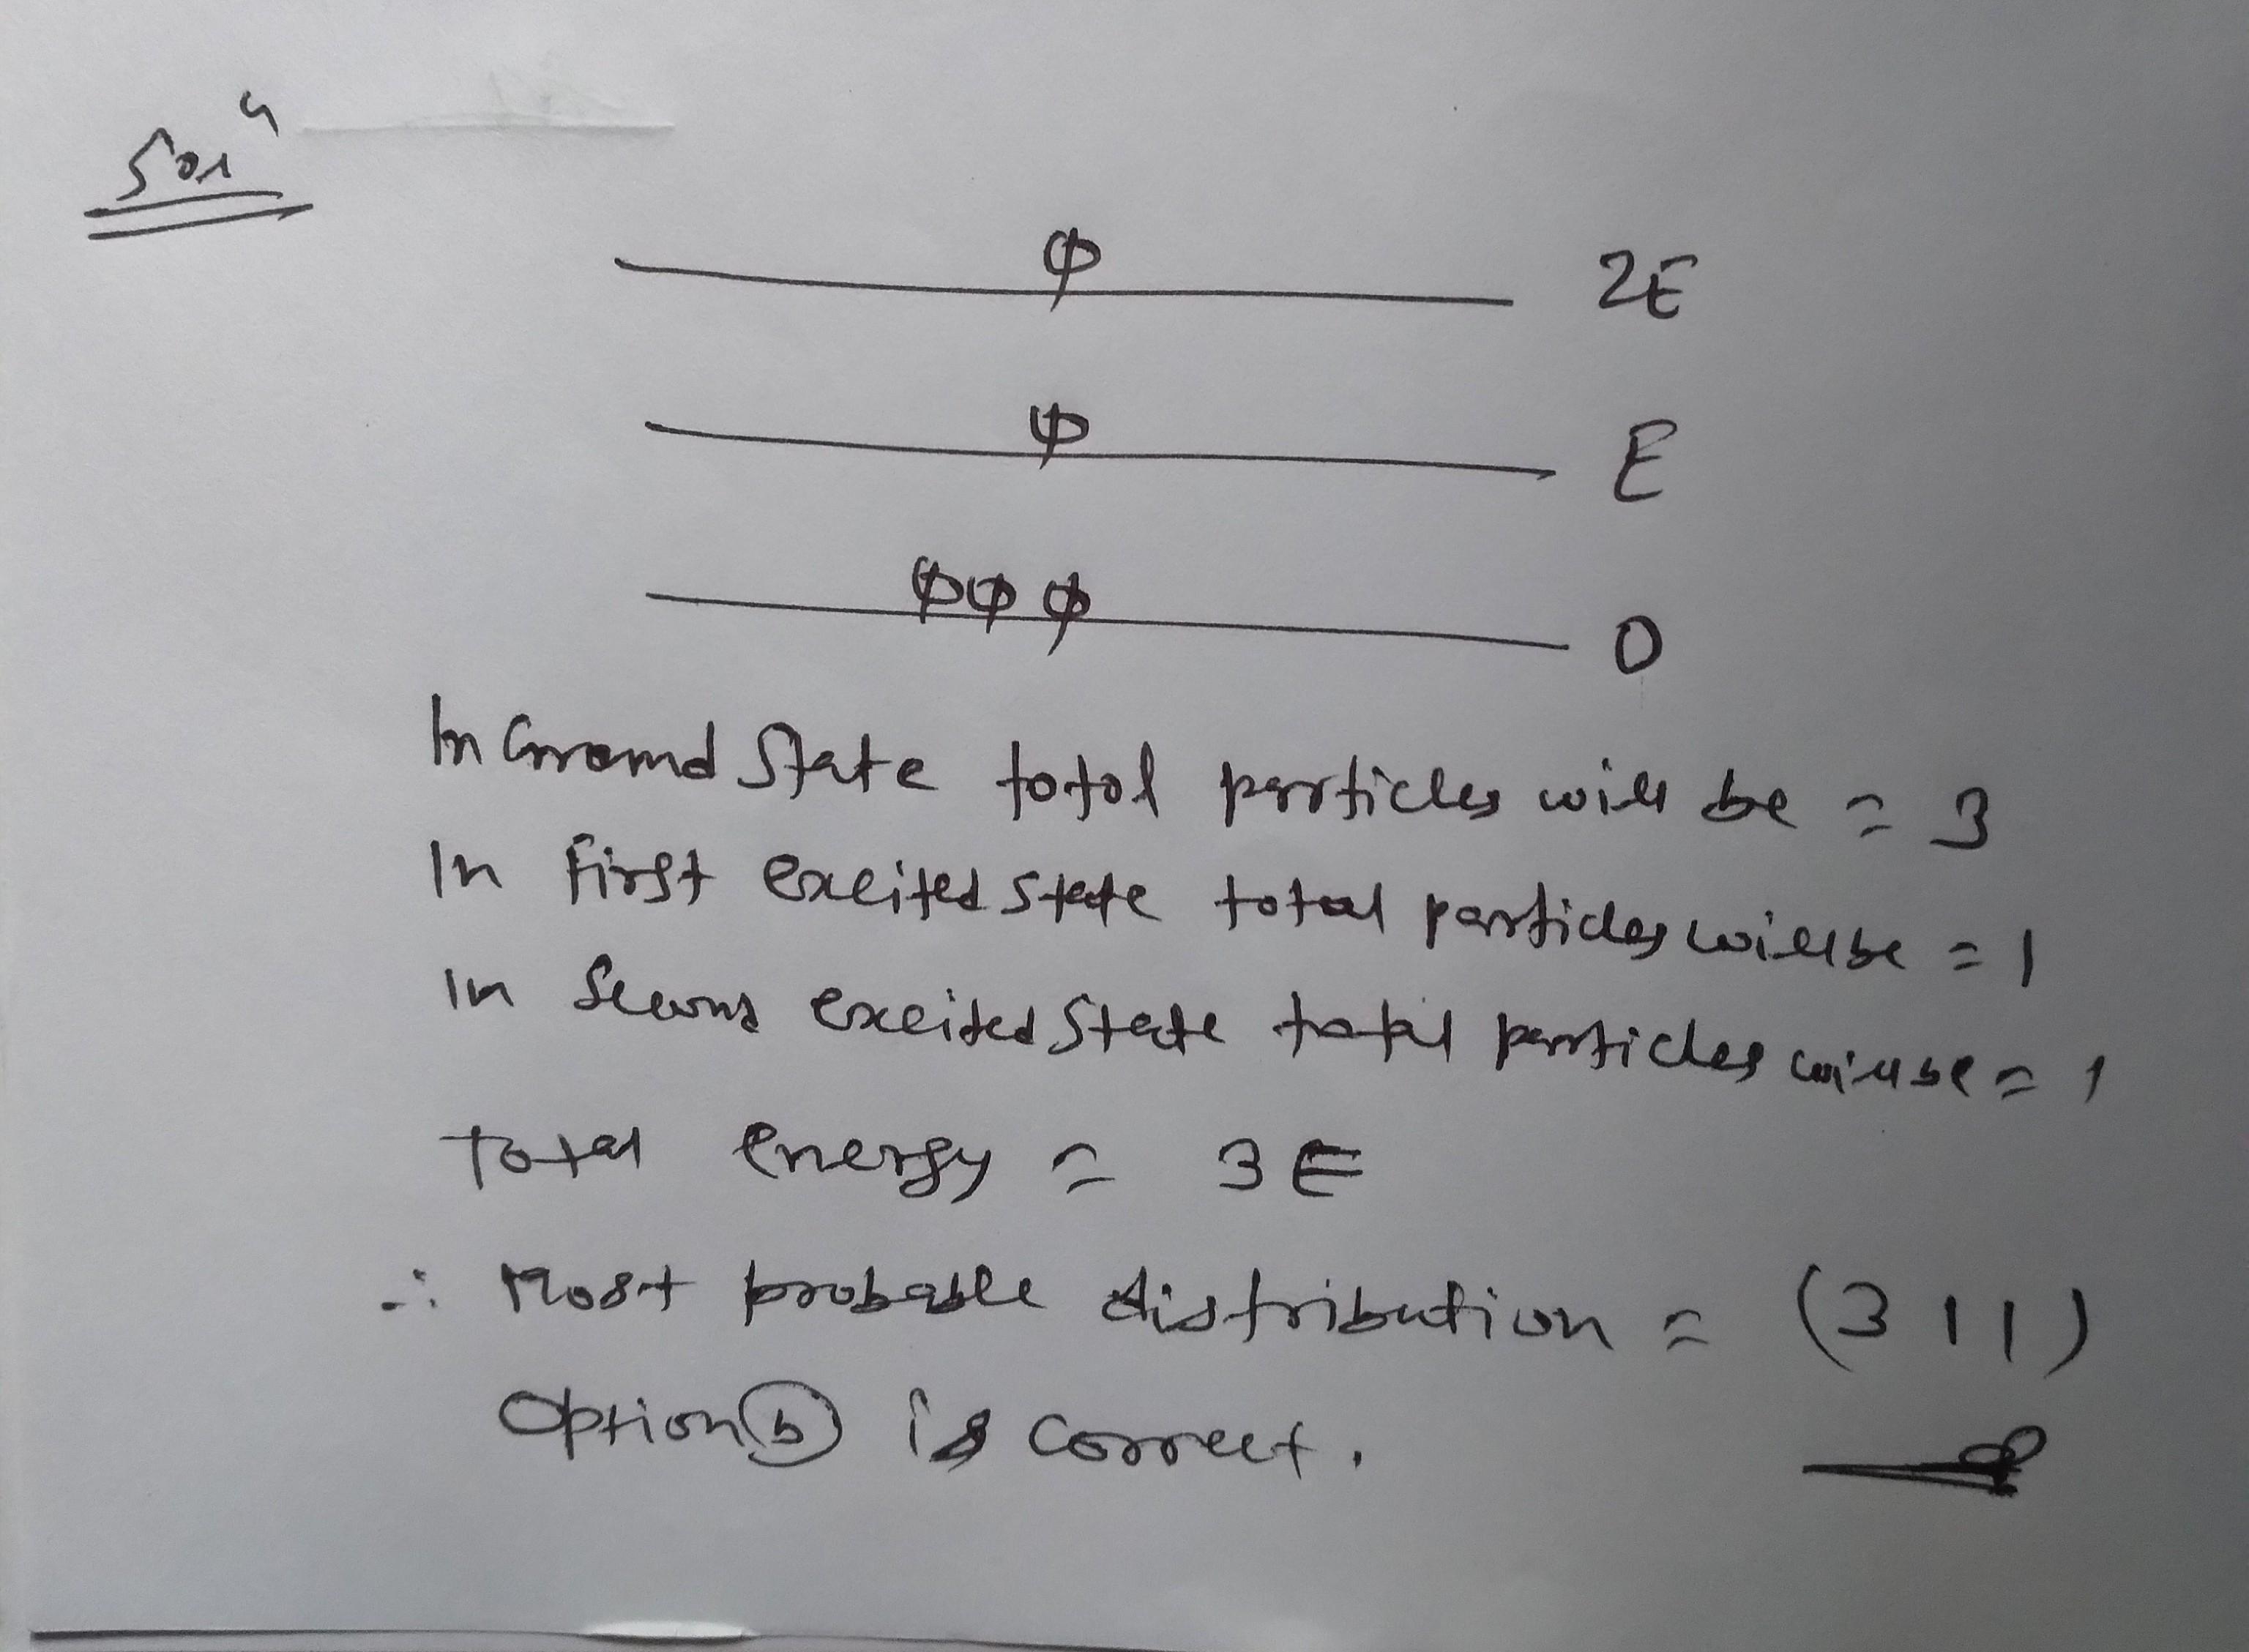 Solⁿ
2E
E
0
In Ground State total particles will be = 3
In first excited state total particles will be = 1
in Second excited State total particles will be = 1
Total energy = 3E
∴ Most probable distribution = (3 1 1)
Option (b) is correct.